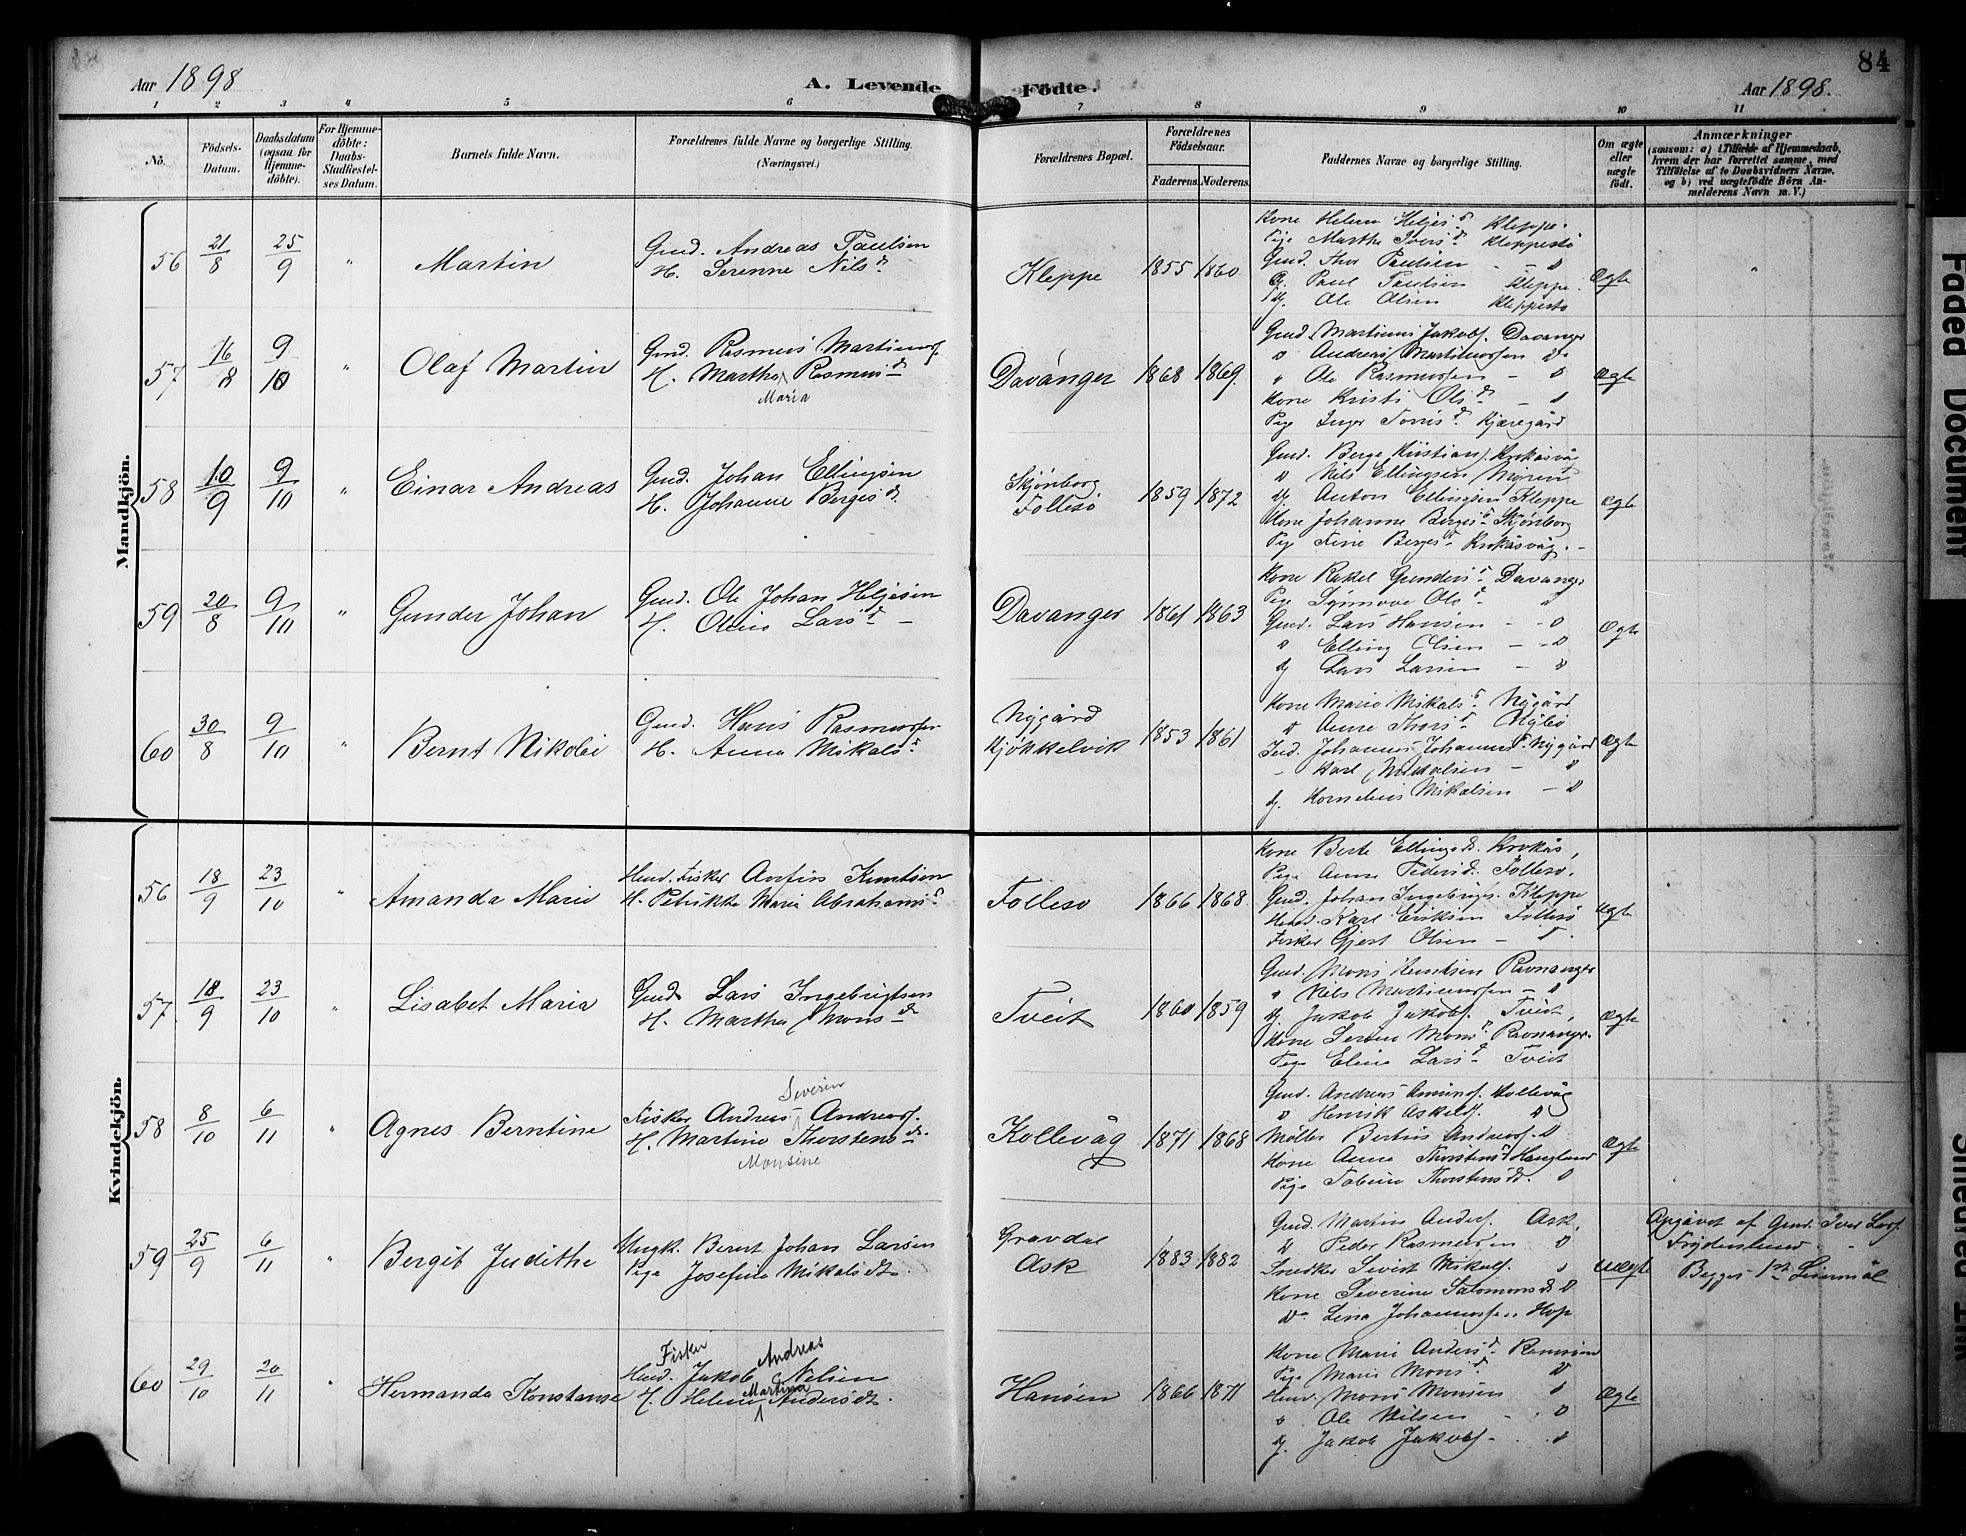 Aar 1898
A. Levende Fødte.
84
Aar 1898.
1 2 3 4 5 6 7 8 9 10 11
No.
Födsels-Datum.
Daabsdatum (ogsaa for Hjemme-döbte).
For Hjemme-döbte: Daabs-Stadfæstel-ses Datum.
Barnets fulde Navn.
Forældrenes fulde Navne og borgerlige Stilling. (Næringsvei.)
Forældrenes Bopæl.
Forældrenes Födselsaar.
Faderens. Moderens.
Faddernes Navne og borgerlige Stilling.
Om ægte eller uægte födt.
Anmærkninger
(saasom: a) i Tilfælde af Hjemmedaab, hvem der har forrettet samme, med Tilföielse af to Daabsvidners Navne, og b) ved uægtefödte Börn An-melderens Navn m. V.)
Mandkjön.
56 21/8 25/9 " Martin
Gmd. Andreas Paulsen
H. Serenne Nilsd.
Kleppe 1855 1860
Kone Helena Heljesd. Kleppe.
Pige Martha Iversd. Kleppestø
Gmd. Thor Paulsen - D
G. Paul Paulsen Kleppe.
Uj. Ole Olsen Kleppestø
Ægte "
57 16/8 9/10 " Olaf Martin
Gmd. Rasmus Martinusf.
H. Martha Rasmusd.
Maria
Davanger 1868 1869.
Gmd. Martinus Jakobs. Davanger
D Andreas Martinussen D
" Ole Rasmussen - D
Kone Kristi Olsd. -
Pige Inger Torrisd. Kjæregård
Ægte
58 10/9 9/10 " Einar Andreas
Gmd. Johan Ellingsen
H. Johanne Bergesd.
Skjønborg
Follesø 1859 1872
Gmd. Berge Kristians. Krokåsvåg
D Nils Ellingsen Myren
Uj Anton Ellingsen Kleppe
Kone Johanne Bergesd. Skjønborg
Pige Fine Bergesd. Krokåsvåg.
Ægte
59 20/8 9/10 " Gunder Johan
Gmd. Ole Johan Heljesen
H. Oline Larsd. -
Davanger 1861 1863
Kone Rakel Gundersd. Davanger
Pige Synnove Olsd. "
Gmd. Lars Hansen - D
D Elling Olsen - D
Uj Lars Larsen - D
Ægte
60 30/8 9/10 " Bernt Nikolai
Gmd. Hans Rasmussen
H. Anna Mikalsd.
Nygård
Kjøkkelvik 1853 1861
Kone Marie Mikalsd. Nygård
D Anne Thorsd. Nybø
Ind. Johannes Johannesf. Nygård
- Karl Mikalsen - D
Uj. Kornelius Mikalsen - D
Ægte
Kvindekjön.
56 18/9 23/10 " Amanda Marie
Hmd. Fisker Anfin Knutsen
H. Petrikke Maria Abrahamsd.
Follesø 1866 1868
Kone Berte Ellingsd. Krokås,
Pige Anne Pedersd. Follesø.
Gmd. Johan Ingebrigts. Kleppe
Hmd. Karl Eriksen Follesø
Fisker Gjert Olsen - D.
Ægte
57 18/9 23/10 " Lisabet Maria
Gmd. Lars Ingebrigtsen
H. Martha Monsd.
Tveit 1860 1859
Gmd. Mons Knutsen Ravnanger
" Nils Martinussen - D
Uj Jakob Jakobs. Tveit,
Kone Seren Monsd. Ravnanger.
Pige Eline Larsd. Tveit
Ægte
58 8/10 6/11 " Agnes Berntine
Severin
Fisker Andreas Andreasf.
H. Martine Thorstensd.
Monsine
Kollevåg 1871 1868
Gmd. Andreas Amunds. Kollevåg
D Henrik Askelds. D
Møller Bertius Andreasf. D
Kone Anne Thorstensd. Haugland
Pige Tobine Thorstensd. D
Ægte
59 25/9 6/11 " Bergit Judithe
Ungk. Bernt Johan Larsen
Pige Josefine Mikalsdt.
Gravdal
Ask 1883 1882
Gmd. Martin Anders. Ask,
D Peder Rasmussen D
Snedker Sivert Mikals. D
Kone Severine Salomonsd. D
D. Lina Johannessen Hop
Uægte
Opgivet af Gmd. Iver Larsf.
Frydenlund.
Begges 1ste Leiermål
60 29/10 20/11 " Hermanda Konstanse
Fisker Andreas
Hmd. Jakob Nilsen
H. Helene Martina Andersdt.
Hansen 1866 1871
Kone Marie Andersd. Ramsøen
Pige Maria Monsd. D
Hmd. Mons Monsen D
" Ole Nilsen - D
Uj. Jakob Jakobs. - D
Ægte
Faded Document
Smeared Ink